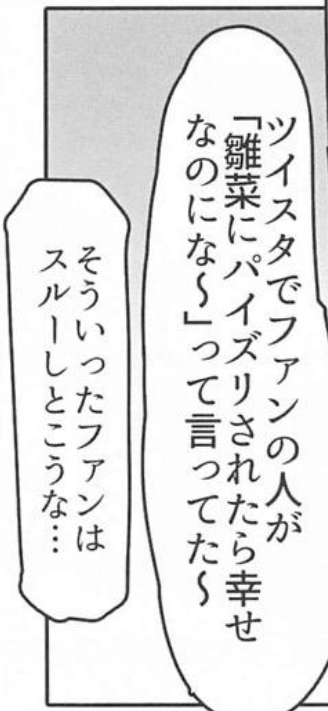 ツイスタでファンの人が
「雛菜にパイズリされたら幸せ
なのにな～」って言ってた～
そういったファンは
スルーしとこうな…